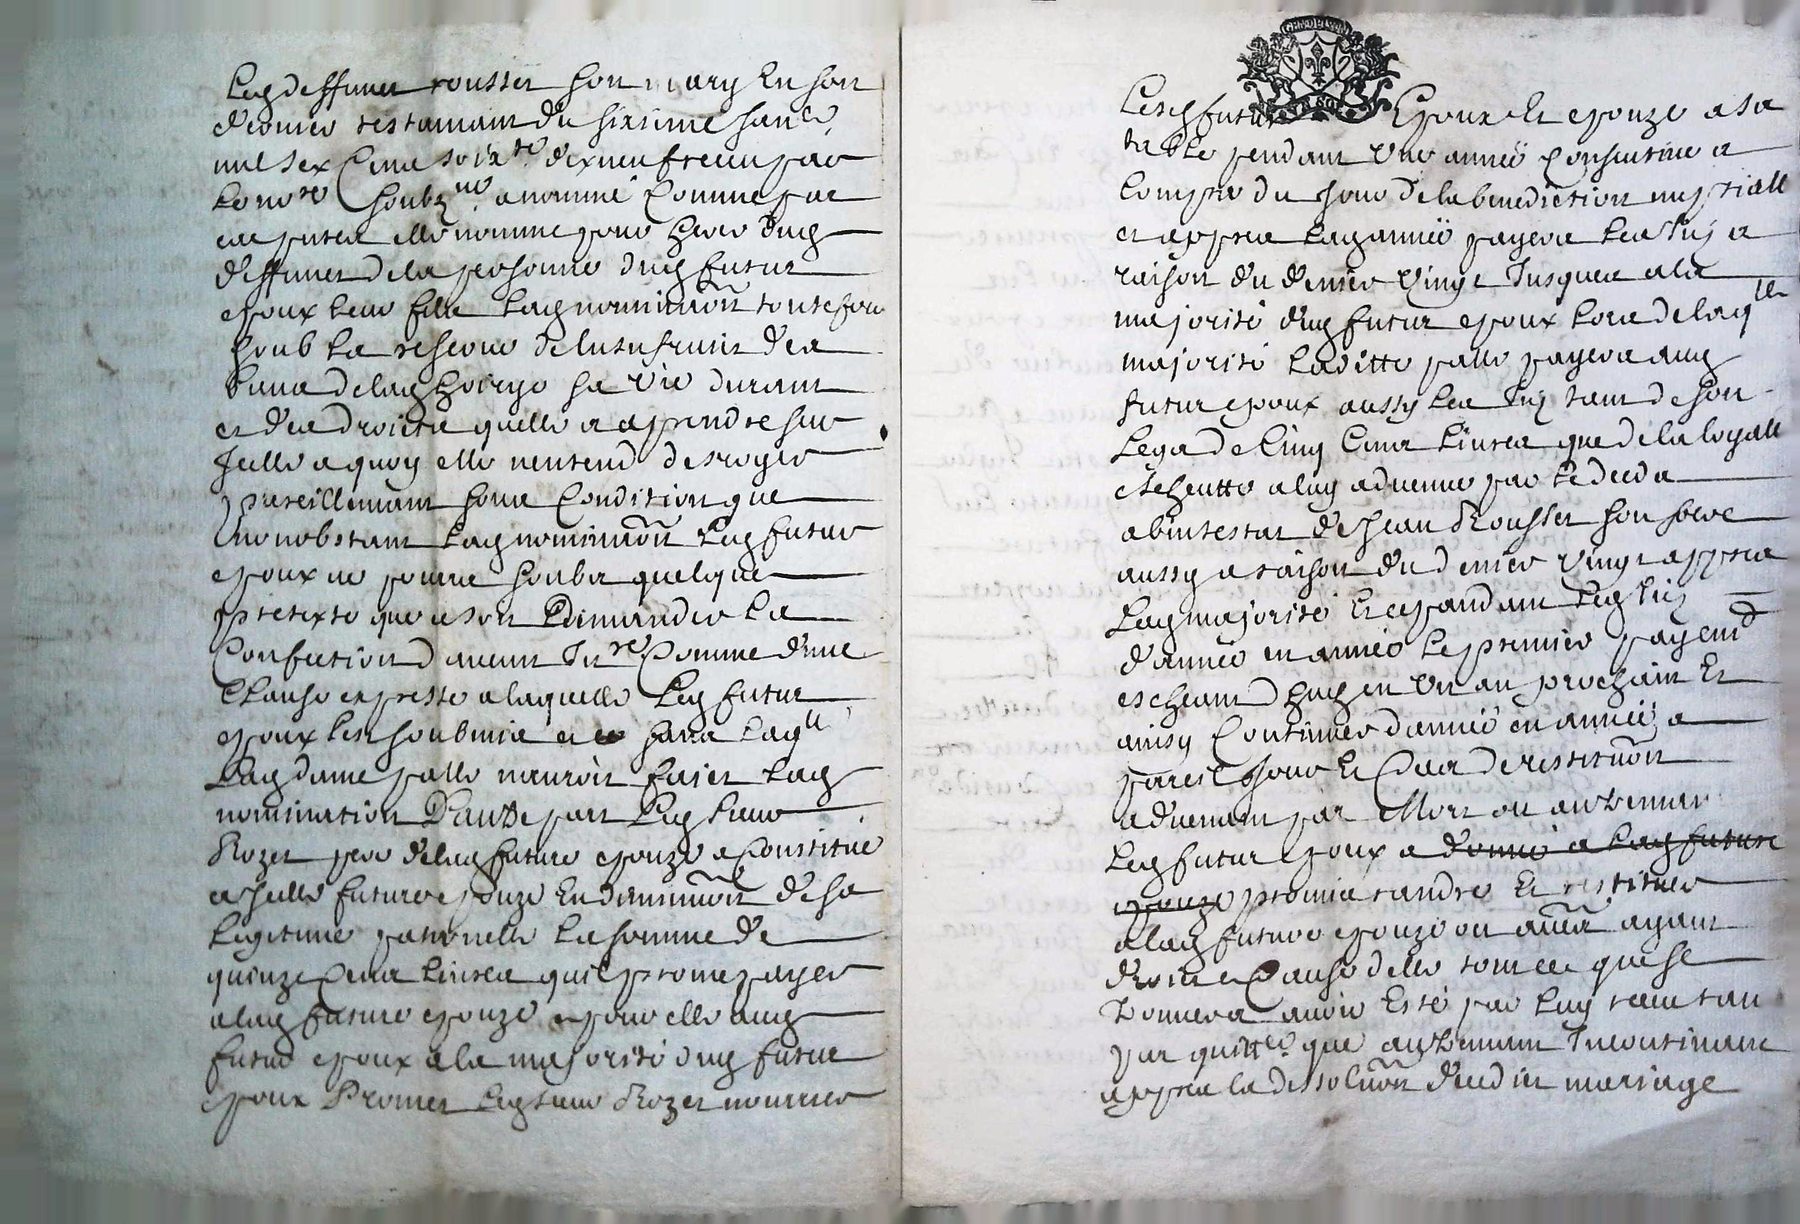 Led deffunct rousset son mary en son
dernier testamant du sixsime janer
mil sex cens soixte dix neuf receu par
le nore soubzne a nommé comme par
ces putes elle nomme pour herer dud
deffunct de la personne dud futur
epoux leur filz lad nominaon toutefois
soub la reserve de lusufruit des
biens de lad hoirye sa vie durant
et des droicts quelle a a prendre sur
Icelle a quoy elle nentend desroger
pareillemant soubz condition que
nonobstant lad nominaon led futur
epoux ne pourra soubz quelque
pretexte que ce soit demander la
confection daucun Inre comme dune
clause expresse a laquelle led futur
epoux sest soubmis et sans laqlle
lad dame palle nauroit faict lad
nomination Dautre part led sieur
Rozet pere de lad future epouze a constitué
a Icelle future epouze en diminuon de sa
legitime paternelle la somme de
quinze cens livres quil promet payer
a lad future epouze et pour elle aud
futur epoux a la majorité dud futur
epoux Promet led sieur Rozet nourrir
Lesd futurs Epoux et epouze a sa
table pendant une année consecutive a
compter du jour de la benediction nuptialle
et appres lad année payera les Intz a
raison du denier vingt Jusques a la
majorité dud futur epoux lors de laqlle
majorité laditte palle payera aud
futur epoux aussy les Intz tant de son
legat de cinq cens livres que de la loyalle
escheutte a luy advenue par le deceds
abintestat de Jean Rousset son frere
aussy a raison du denier vingt appres
lad majorité et cependant lesd Intz
dannée en année le premier payemt
escheant dhuy en un an prochain et
ainsy continuer dannée en année a
pareil jour et cas de restituon
advenant par mort ou autremant
led futur epoux a donné a lad future
epouze promis randre et restituer
a lad future epouze ou aues ayant
droict et cause delle tout ce que se
trouvera avoir esté par luy receu tant
par quittce que autremant Incontinant
appres la dissoluon dud mariage